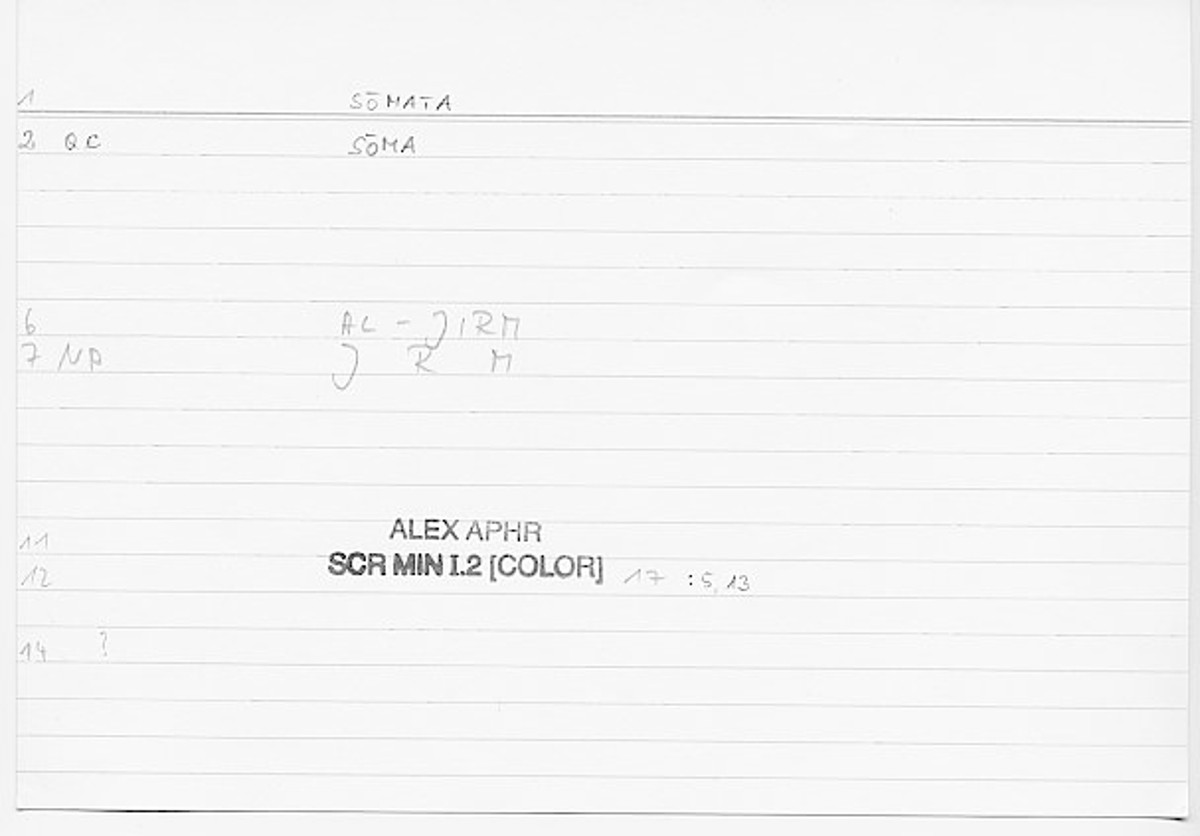 1 SŌMATA
2 QC SŌMA
6 AL - JIRM
7 NA J R M
11 ALEX APHR
12 SCR MIN I.2 [COLOR] 17 : 5, 13
14 ?